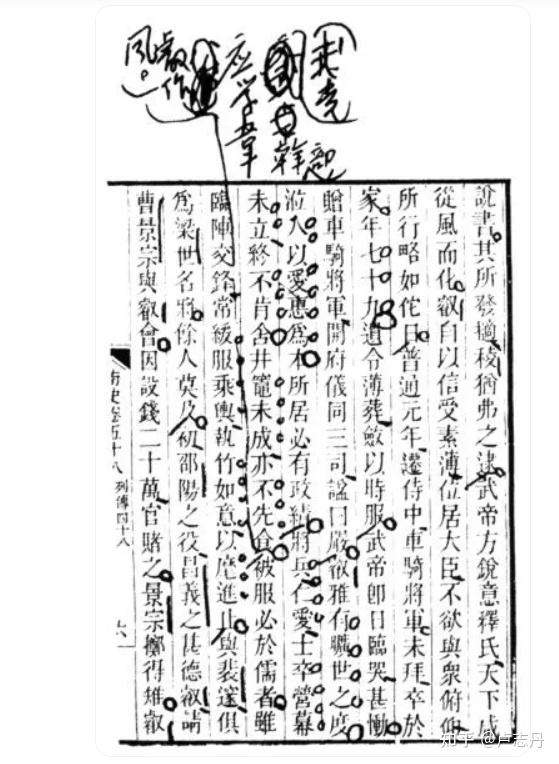 我党
幹部
应学韋
叡作
风。
說書其所發擿稜猶弗之逮武帝方銳意釋氏天下咸
從風而化叡自以信受素薄位居大臣不欲與衆俯仰
所行略如佗日普通元年遷侍中車騎將軍未拜卒於
家年七十九遺令薄葬斂以時服武帝卽日臨哭甚慟
贈車騎將軍開府儀同三司諡曰嚴叡雅有曠世之度
涖人以愛惠爲本所居必有政績將兵仁愛士卒營幕
未立終不肯舍井竈未成亦不先食被服必於儒者雖
臨陣交鋒常緩服乘輿執竹如意以麾進止與裴邃俱
爲梁世名將餘人莫及初邵陽之役昌義之甚德叡請
曹景宗與叡會因設錢二十萬官賭之景宗擲得雉叡
南史卷五十八 列傳四十八
知乎 @卢志丹